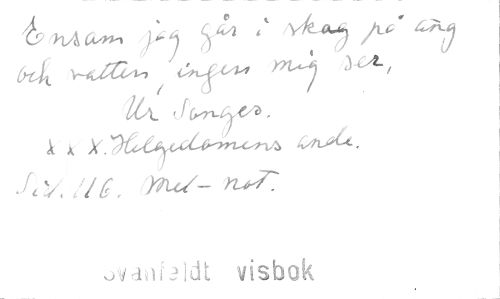 Ensam jag går i skog på äng
och vatten, ingen mig ser,
Ur Songes.
x x x. Helgedomens ande.
Sid. 116. Mel-not.
Svanfeldt visbok